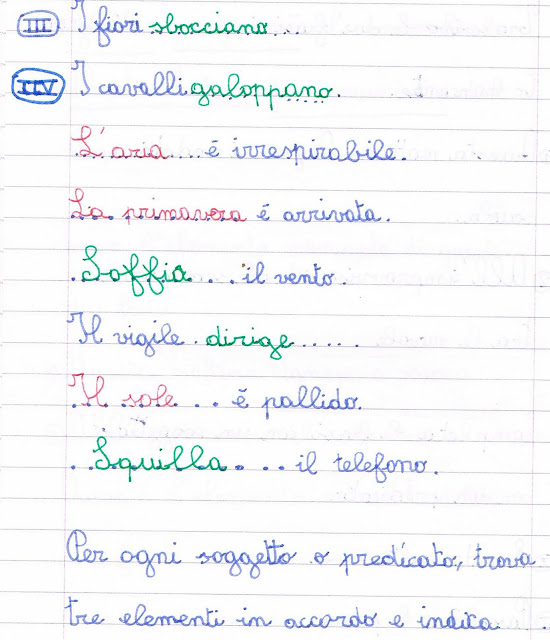 III I fiori sbocciano...
IIV I cavalli galoppano.
L'aria....é irrespirabile.
La primavera é arrivata.
.Soffia...il vento.
Il vigile.dirige......
Il sole...é pallido.
..Squilla....il telefono.
Per ogni soggetto o predicato, trova
tre elementi in accordo e indica